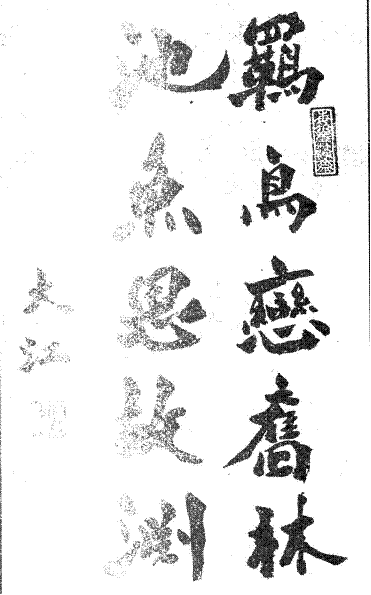 羈鳥戀舊林
池魚思故淵
大江